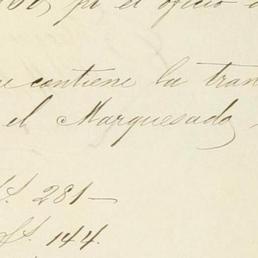 pr el oficio
contiene la tran
el Marquesado
281—
144.